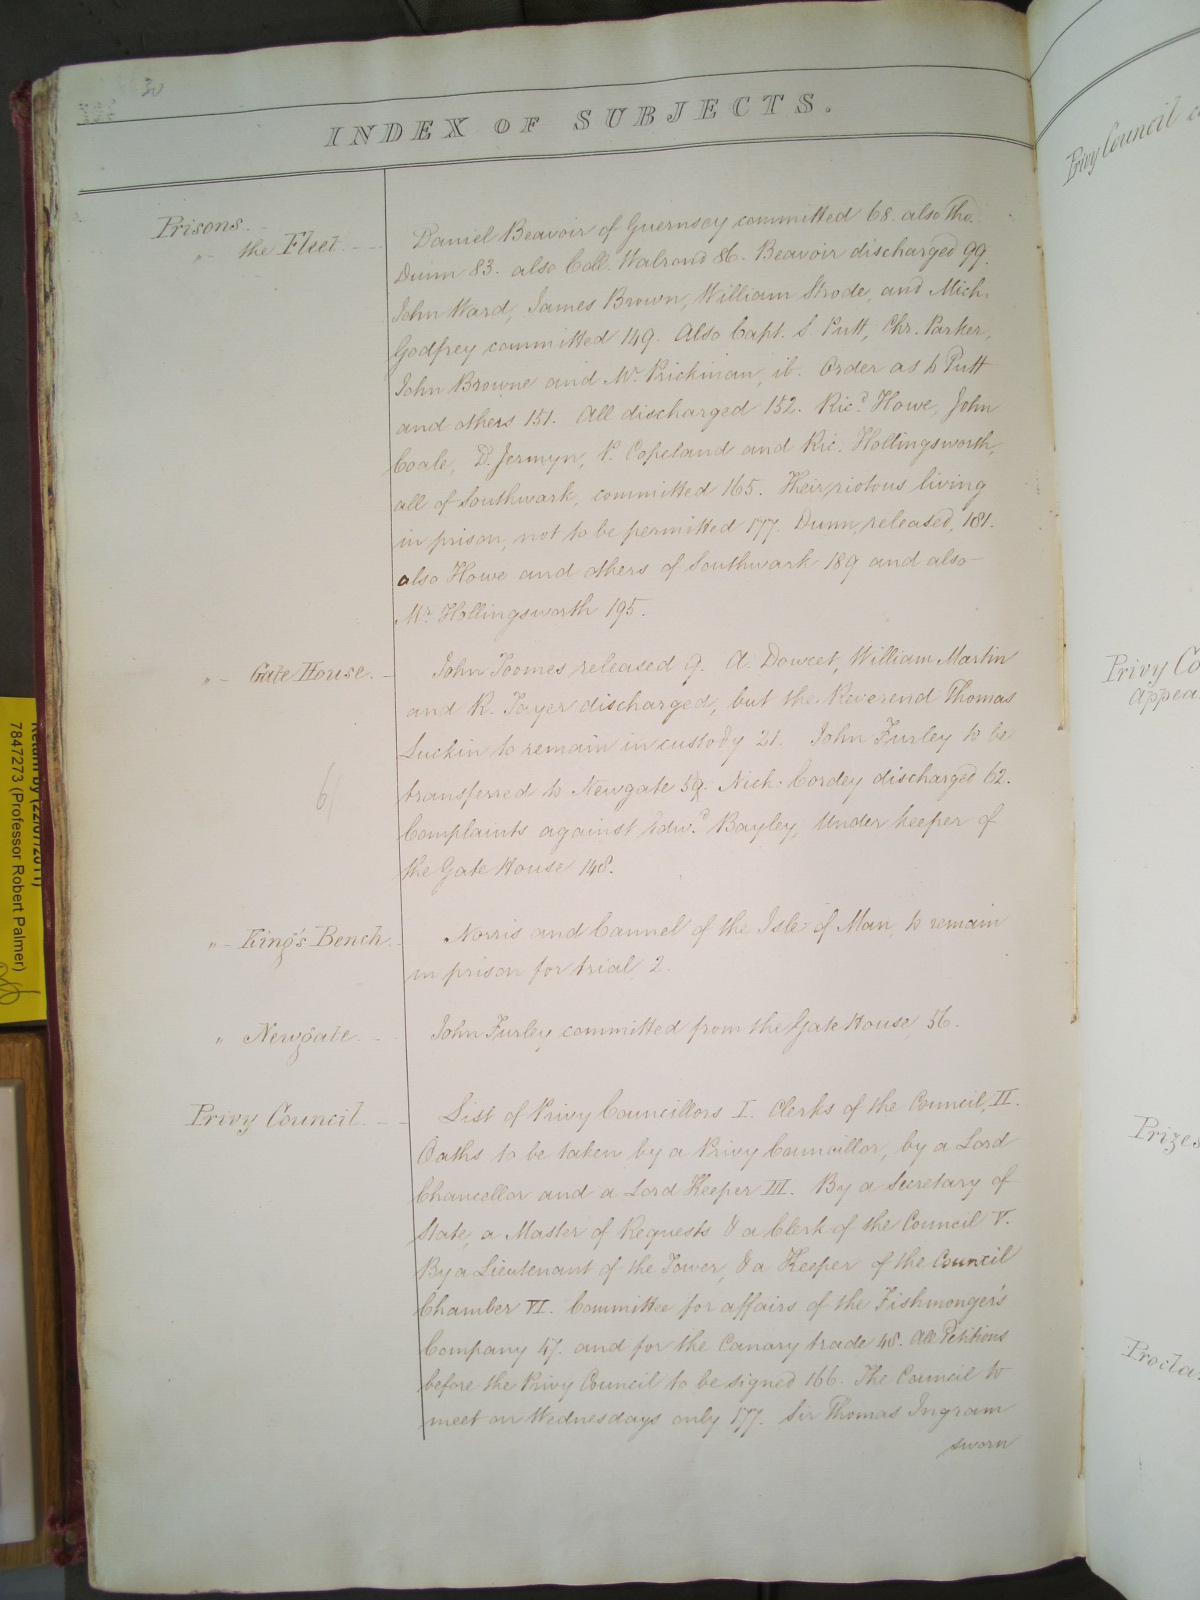 30
INDEX OF SUBJECTS.
Prisons.
" - the Fleet. - - -
Daniel Beavoir of Guernsey committed 68. also Tho.
Dunn 83. also Coll. Walrond 86. Beavoir discharged 99.
John Ward, James Brown, William Strode, and Mich.
Godfrey committed 149. Also Capt. S. Putt, Chr. Parker,
John Browne and Mr. Prickman, ib. Order as to Putt
and others 151. All discharged 152. Ricd. Howe, John
Coale, D. Jermyn, P. Copeland and Ric. Hollingsworth,
all of Southwark, committed 165. Their riotous living
in prison, not to be permitted 177. Dunn, released, 181.
also Howe and others of Southwark 189 and also
Mr. Hollingsworth 195.
" - Gate House. -
John Toomes released 9. A. Dowcet, William Martin
and R. Tayer discharged, but the Reverend Thomas
Luckin to remain in custody 21. John Furley to be
transferred to Newgate 59. Nich. Cordey discharged 62.
Complaints against Edwd. Bayley, Under keeper of
the Gate House 148.
6/
" - King's Bench. -
Norris and Cannel of the Isle of Man, to remain
in prison for trial 2.
" Newgate. - -
John Furley committed from the Gate House, 56.
Privy Council. - -
List of Privy Councillors I. Clerks of the Council, II.
Oaths to be taken by a Privy Councillor, by a Lord
Chancellor and a Lord Keeper III. By a Secretary of
State, a Master of Requests & a Clerk of the Council V.
By a Lieutenant of the Tower, & a Keeper of the Council
Chamber VI. Committee for affairs of the Fishmonger's
Company 47. and for the Canary trade 48. All Petitions
before the Privy Council to be signed 166. The Council to
meet on Wednesdays only 177. Sir Thomas Ingram
sworn
Privy Council
Privy Co
appea
Prizes
Procla
7847273 (Professor Robert Palmer)